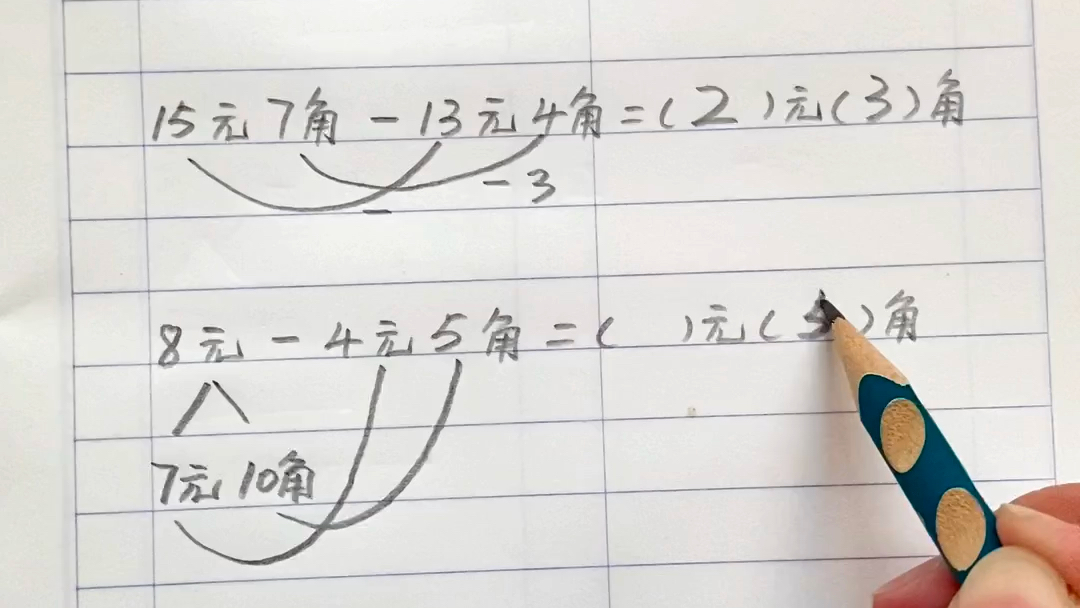 15元7角-13元4角=(2)元(3)角
-3
-
8元-4元5角=( )元(5)角
7元10角